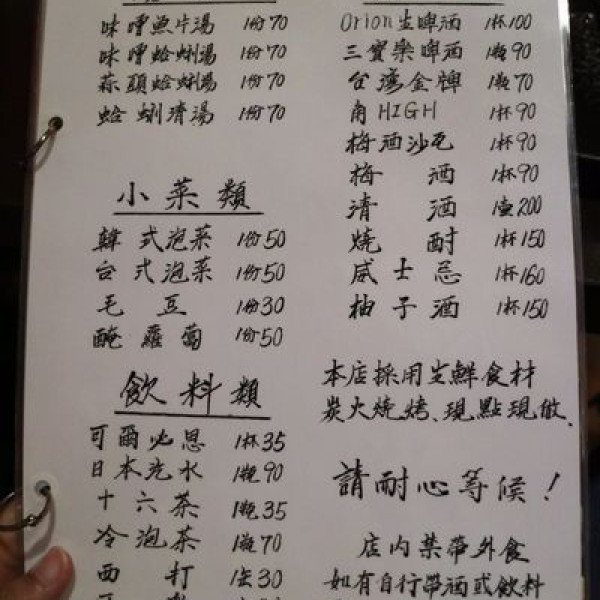 味噌魚片湯 1份70
味噌蛤蜊湯 1份70
蒜頭蛤蜊湯 1份70
蛤蜊清湯 1份70
小菜類
韓式泡菜 1份50
台式泡菜 1份50
毛豆 1份30
醃蘿蔔 1份50
飲料類
可爾必思 1杯35
日本汽水 1瓶90
十六茶 1瓶35
冷泡茶 1瓶70
西打 1罐30
Orion生啤酒 1杯100
三寶樂啤酒 1瓶90
台灣金牌 1瓶70
角HIGH 1杯90
梅酒沙瓦 1杯90
梅酒 1杯90
清酒 1壺200
燒酎 1杯150
威士忌 1杯160
柚子酒 1杯150
本店採用生鮮食材
炭火燒烤、現點現做.
請耐心等候!
店內禁帶外食
如有自行帶酒或飲料